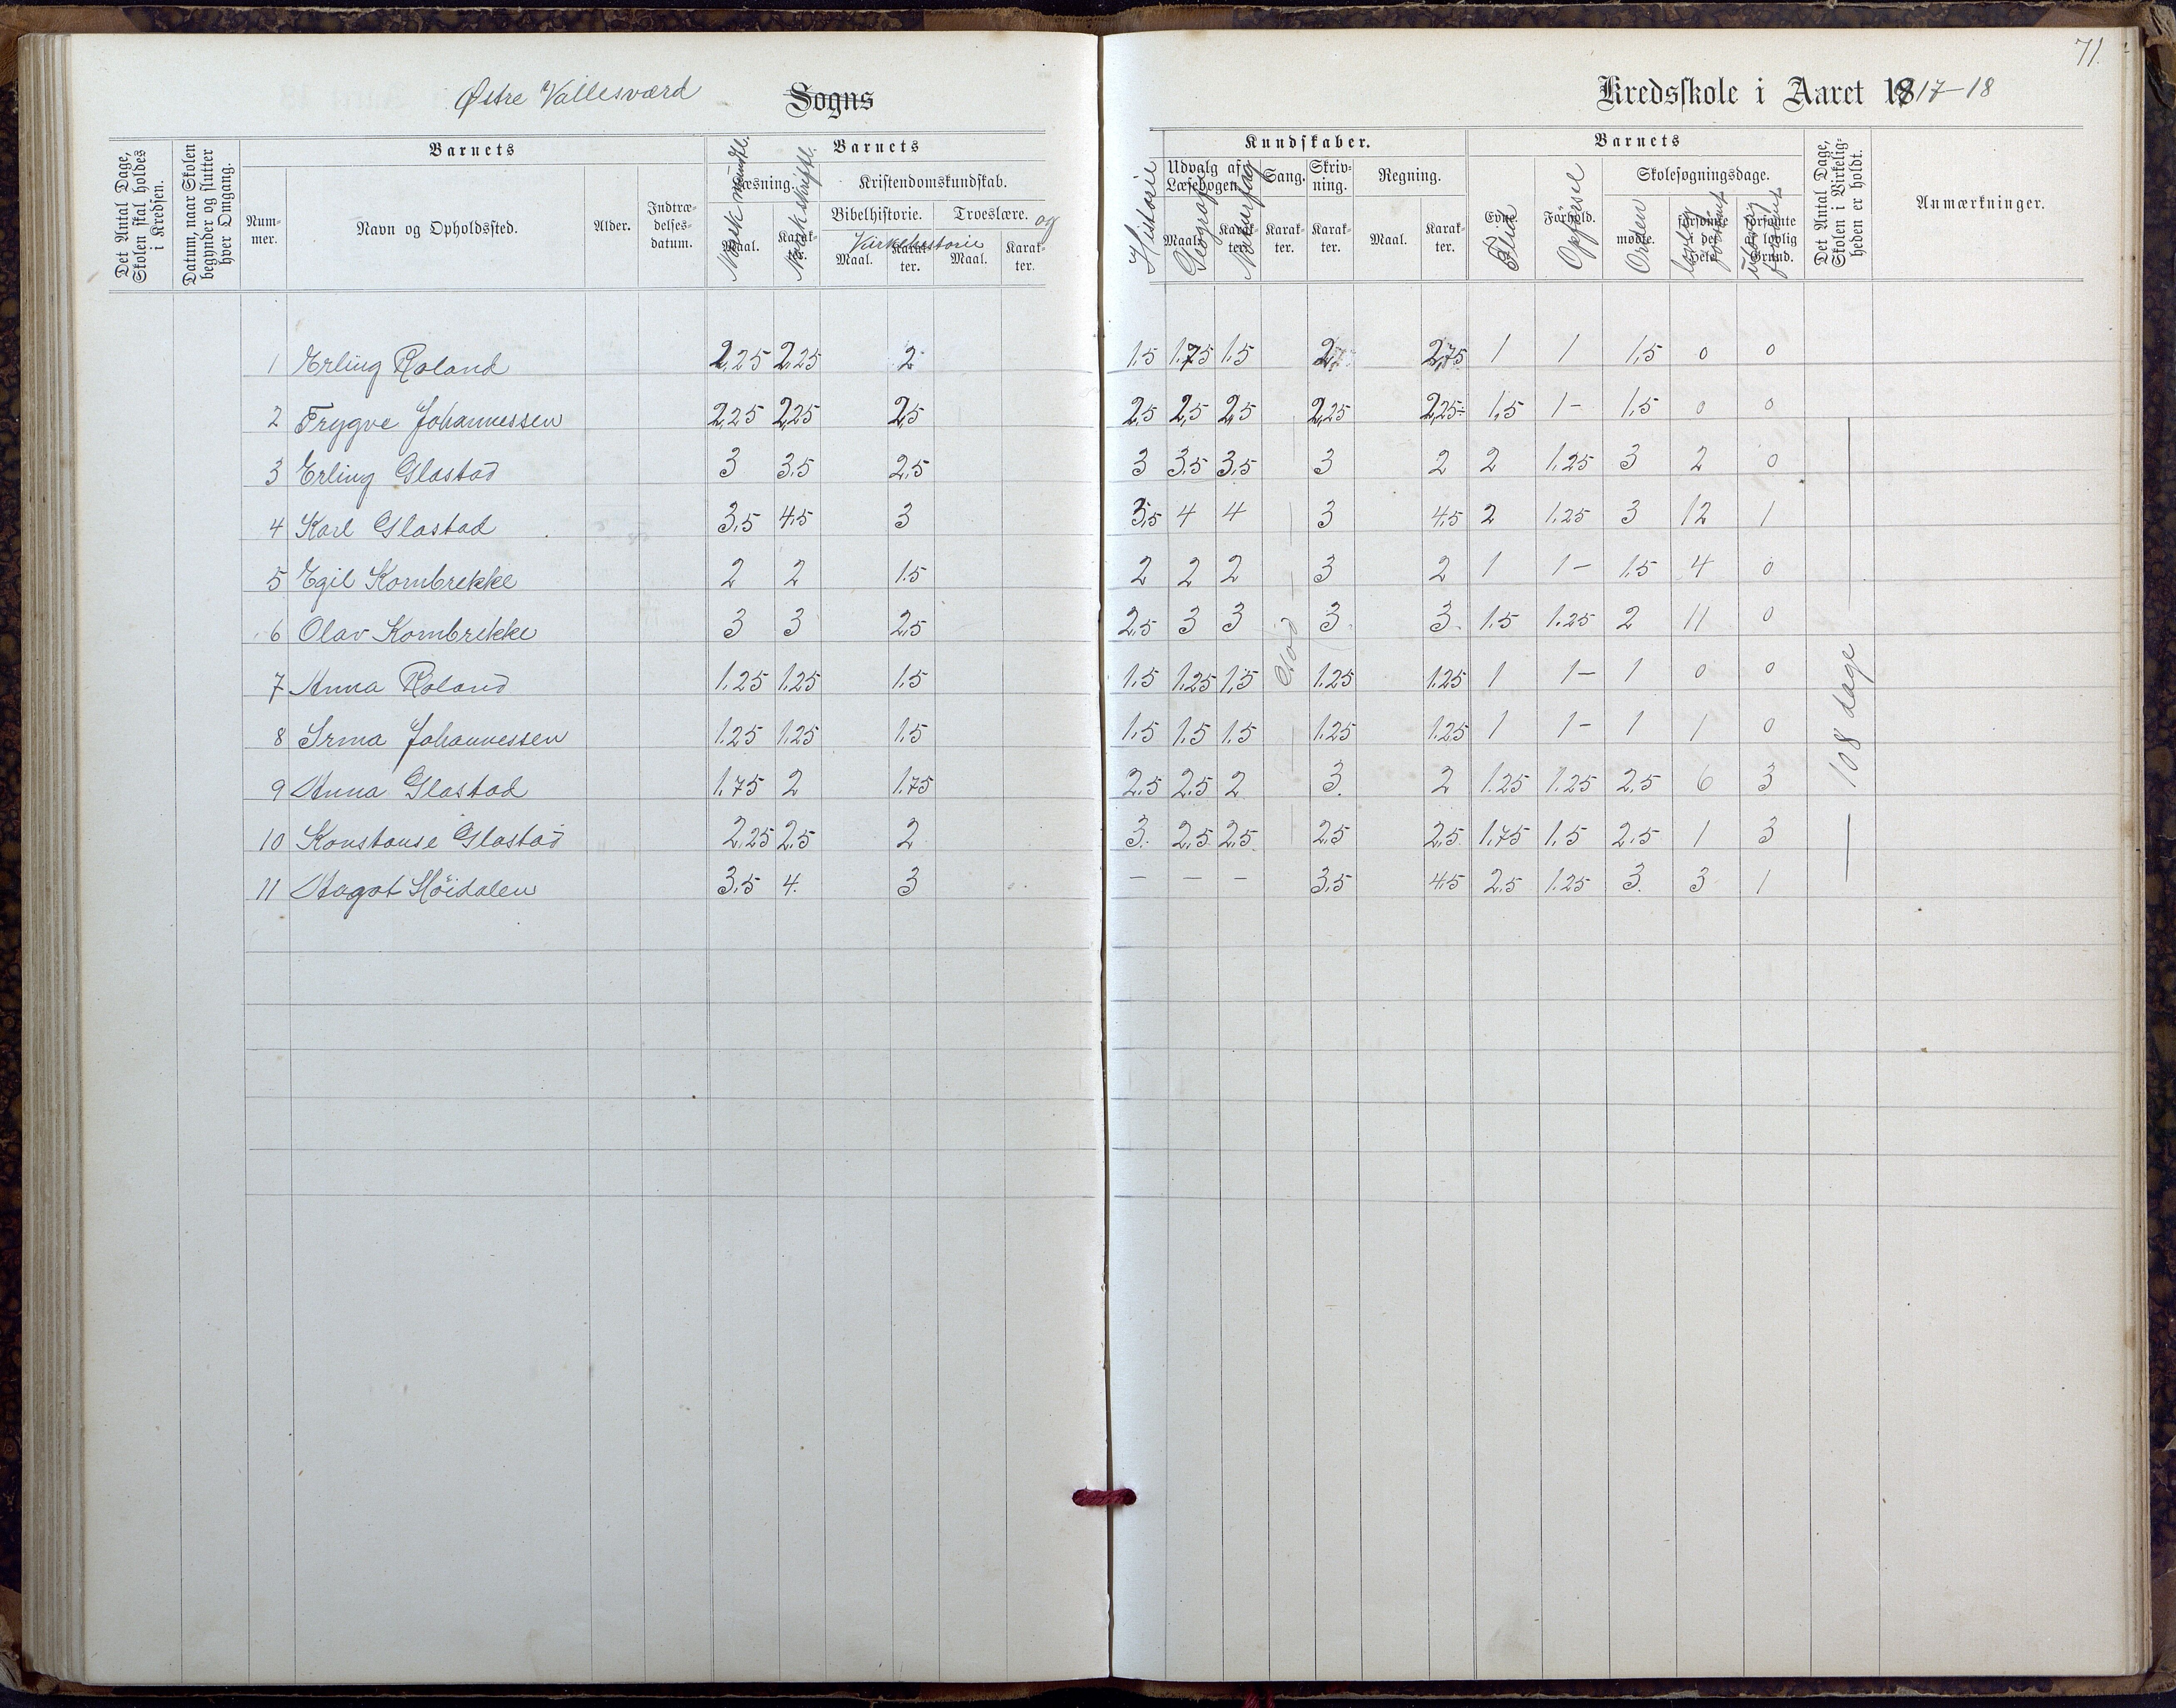 71.
Østre Vallesværd Sogns Kredsskole i Aaret 1917-18
Det Antal Dage, Skolen skal holdes i Kredsen.
Datum, naar Skolen begynder og slutter hver Omgang.
Barnets
Nummer.
Navn og Opholdssted.
Alder.
Indtrædelsesdatum.
Barnets
Læsning.
Maal. Karakter.
Norsk mundtl.
Norsk skriftl.
Kristendomskundskab.
Bibelhistorie. Troeslære.
og
Kirkehistorie
Maal. Karakter. Maal. Karakter.
Historie
Kundskaber.
Udvalg af Læsebogen. Sang. Skrivning. Regning.
Maal. Karakter. Karakter. Karakter. Maal. Karakter.
Geografi
Naturfag
Barnets
Evne. Forhold. Skolesøgningsdage.
Flid
Opførsel
Orden
mødte. forsømte det Hele. forsømte af lovlig Grund.
lovlig forsømt
ulovlig forsømt
Det Antal Dage, Skolen i Virkeligheden er holdt.
Anmærkninger.
1 Erling Roland 2,25 2,25 2 1.5 1.75 1.5 2,75 1 1 1,5 0 0
2 Trygve Johannessen 2,25 2,25 2,5 2,5 2,5 2,5 2,25 2,25- 1,5 1- 1,5 0 0
3 Erling Glastad 3 3.5 2,5 3 3.5 3,5 3 2 2 1.25 3 2 0
4 Karl Glastad 3,5 4.5 3 3,5 4 4 3 4,5 2 1.25 3 12 1
5 Egil Kornbrekke 2 2 1.5 2 2 2 3 2 1 1- 1.5 4 0
6 Olav Kornbrekke 3 3 2,5 2.5 3 3 3. 3. 1.5 1.25 2 11 0
7 Anna Roland 1.25 1.25 1.5 1.5 1.25 1,5 1.25 1.25 1 1- 1 0 0
8 Irma Johannessen 1.25 1.25 1.5 1.5 1.5 1.5 1.25 1.25 1 1- 1 1 0
9 Anna Glastad 1.75 2 1.75 2.5 2.5 2 3. 2 1.25 1.25 2,5 6 3
10 Konstanse Glastad 2,25 2.5 2 3. 2,5 2,5 2,5 2,5 1.75 1.5 2.5 1 3
11 Aagot Höidalen 3,5 4. 3 - - - 3,5 4,5 2.5 1.25 3. 3 1
God
108 dage